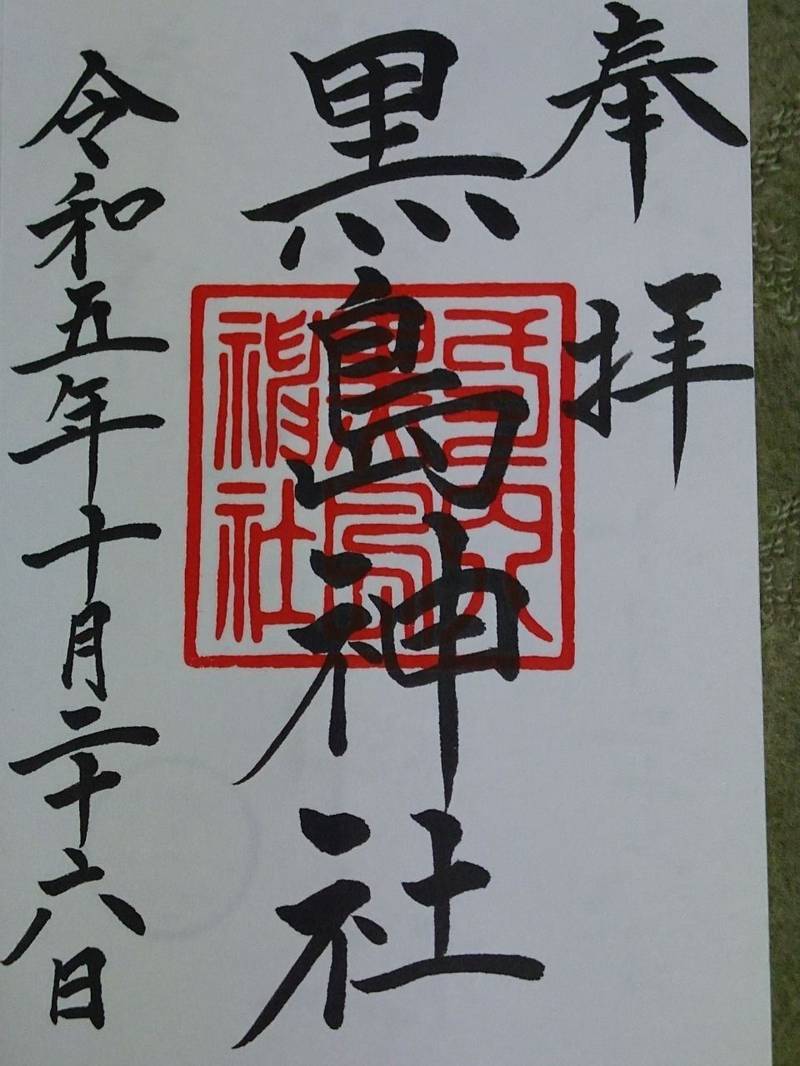 奉拝
黒島神社
令和五年十月二十六日